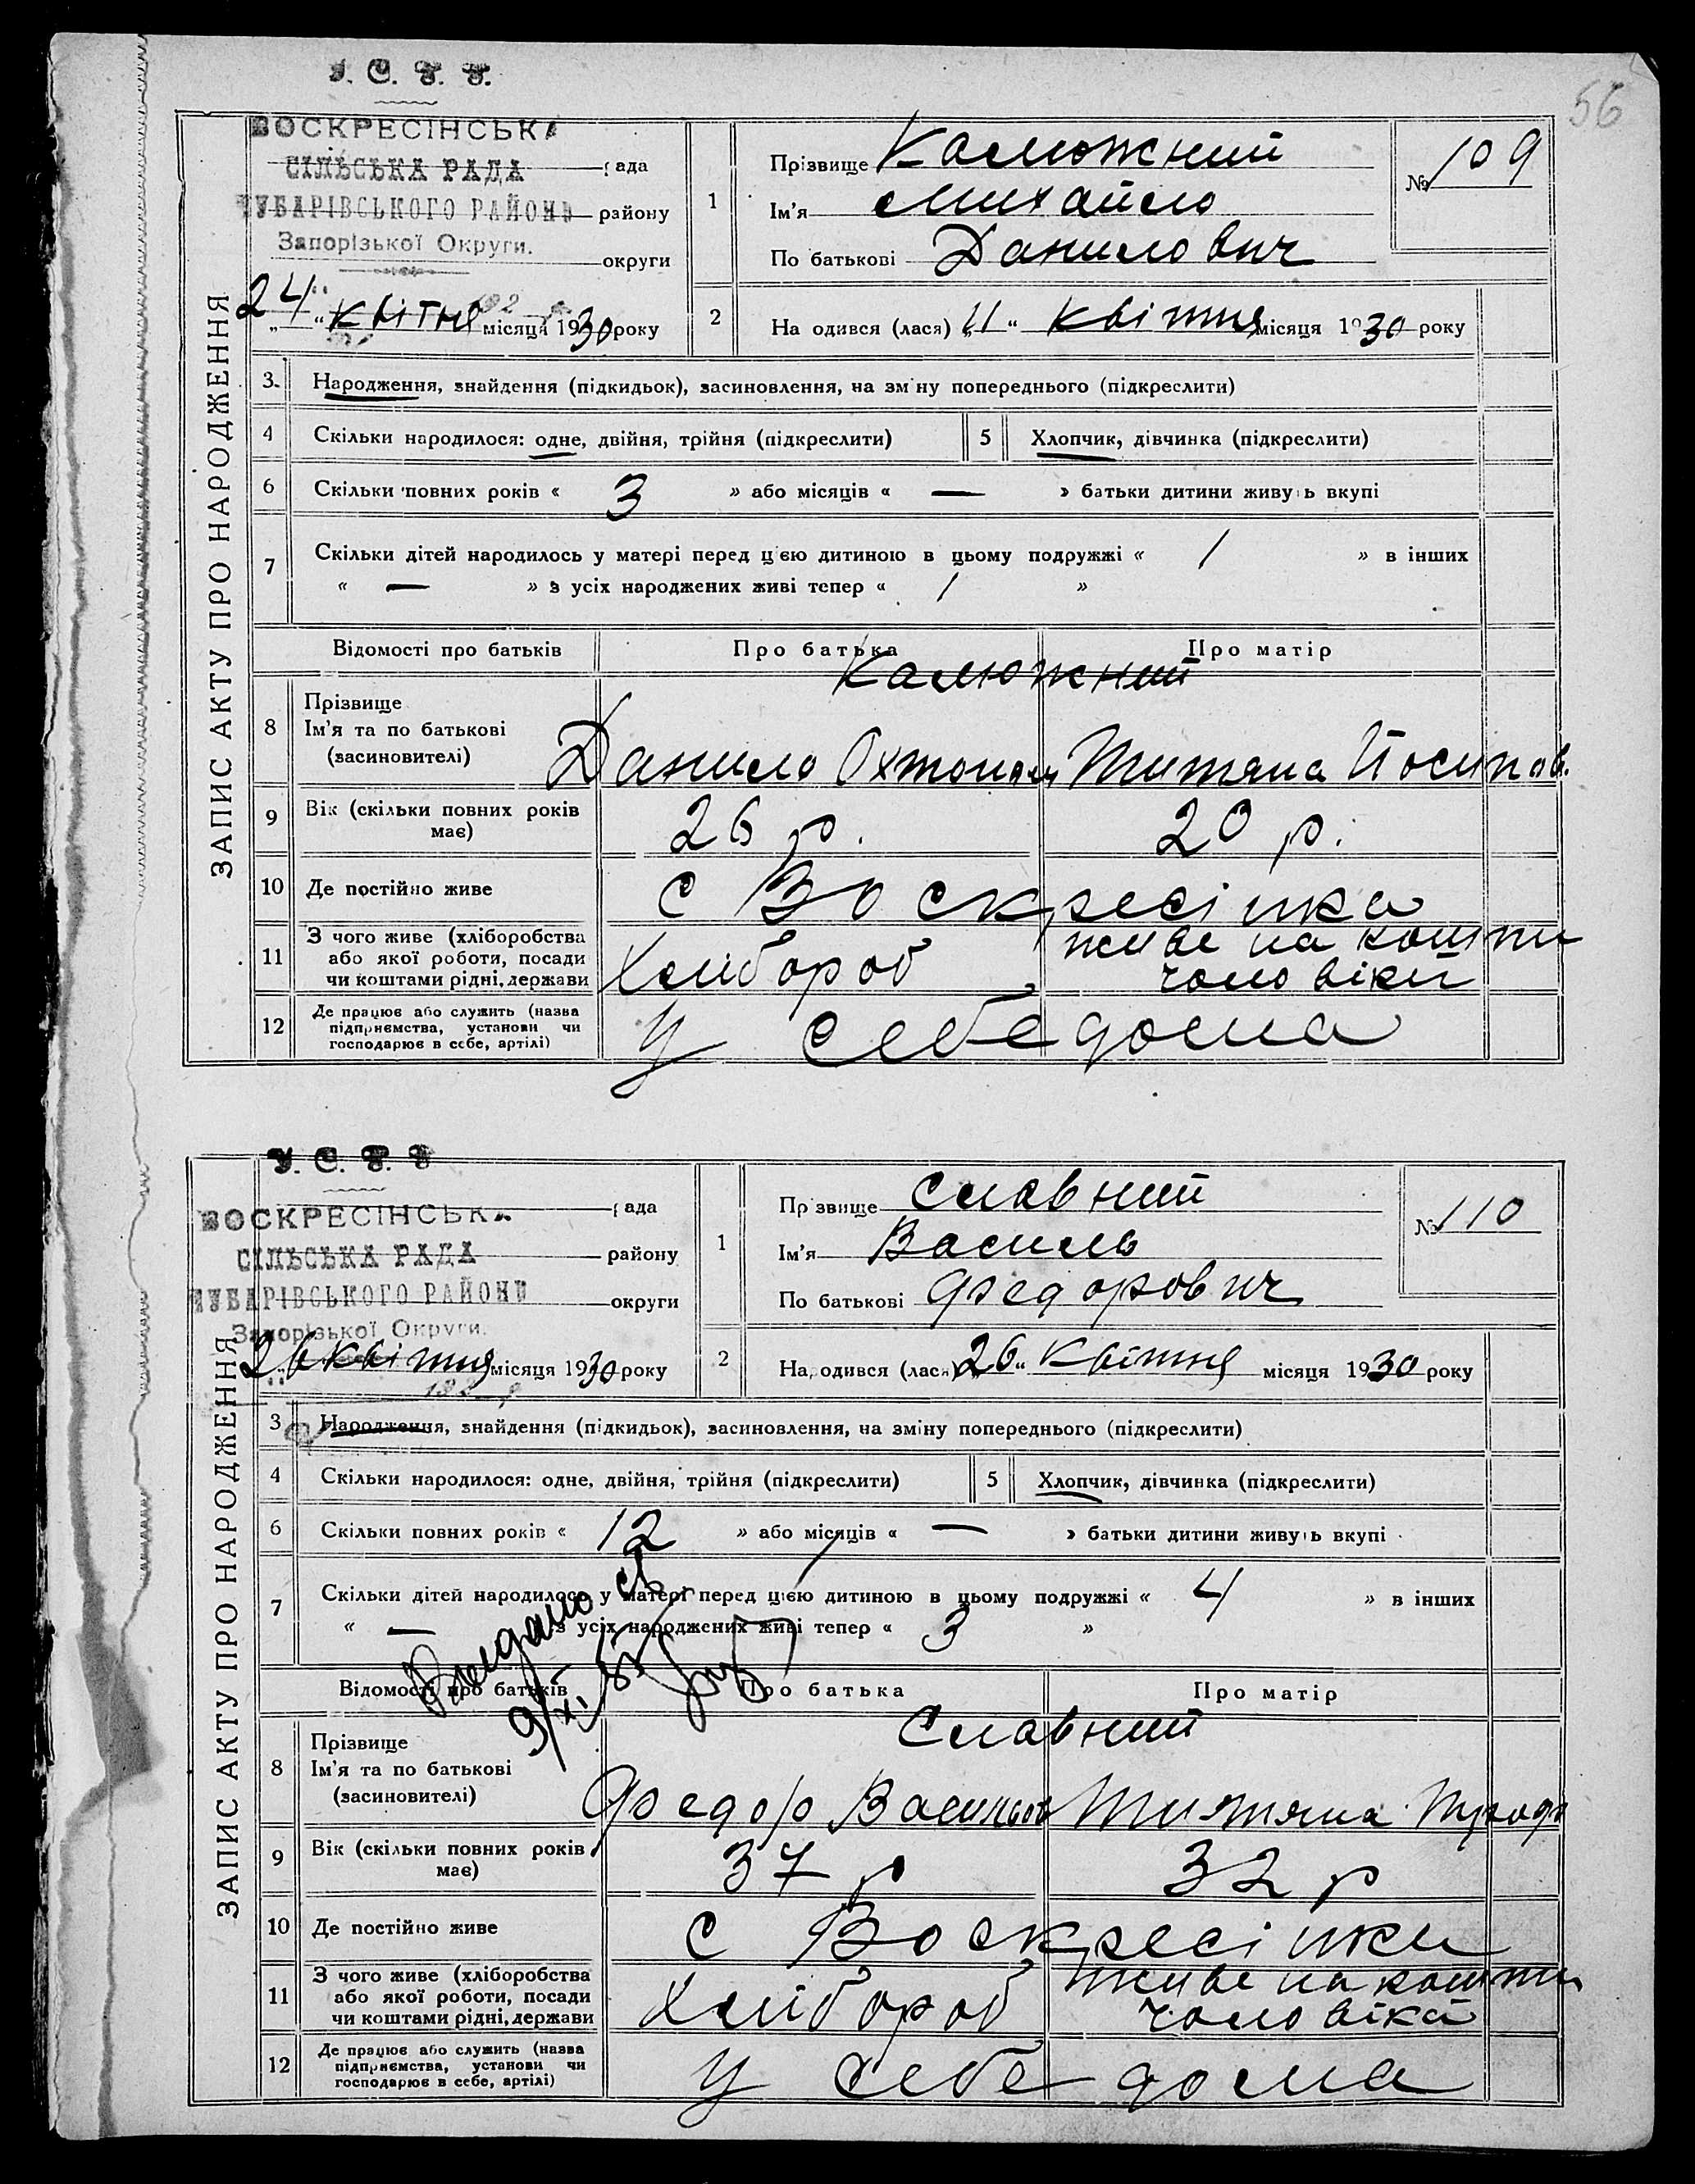 56
У. С. Р. Р.
ВОСКРЕСІНСЬКА
СІЛЬСЬКА РАДА рада
ЧУБАРІВСЬКОГО РАЙОНУ району
Запорізької Округи.
округи
24 " квітня місяця 1930 року
ЗАПИС АКТУ ПРО НАРОДЖЕННЯ
1 Прізвище Калюжний
Ім'я Михайло
По батькові Данилович
№ 109
2 Народився (лася) „11“ квітня місяця 1930 року
3. Народження, знайдення (підкидьок), засиновлення, на зміну попереднього (підкреслити)
4 Скільки народилося: одне, двійня, трійня (підкреслити) 5 Хлопчик, дівчинка (підкреслити)
6 Скільки повних років « 3 » або місяців « — » батьки дитини живуть вкупі
7 Скільки дітей народилось у матері перед цією дитиною в цьому подружжі « 1 » в інших
« — » з усіх народжених живі тепер « 1 »
Відомості про батьків Про батька Про матір
Калюжний
8 Прізвище
Ім'я та по батькові
(засиновителі)
Данило Титяна Йосипов.
9 Вік (скільки повних років має) 26 р. 20 р.
10 Де постійно живе с Воскресінка
11 З чого живе (хліборобства
або якої роботи, посади
чи коштами рідні, держави
Хлібороб живе на кошти
чоловіка
12 Де працює або служить (назва
підприємства, установи чи
господарює в себе, артілі)
у себе дома
У. С. Р. Р
ВОСКРЕСІНСЬКА рада
СІЛЬСЬКА РАДА району
ЧУБАРІВСЬКОГО РАЙОНУ округи
Запорізької Округи.
26 квітня місяця 1930 року
ЗАПИС АКТУ ПРО НАРОДЖЕННЯ
1 Прізвище Славний
Ім'я Василь
По батькові Федорович
№ 110
2 Народився (лася) „26“ квітня місяця 1930 року
3 Народження, знайдення (підкидьок), засиновлення, на зміну попереднього (підкреслити)
4 Скільки народилося: одне, двійня, трійня (підкреслити) 5 Хлопчик, дівчинка (підкреслити)
6 Скільки повних років « 12 » або місяців « — » батьки дитини живуть вкупі
7 Скільки дітей народилося у матері перед цією дитиною в цьому подружжі « 4 » в інших
« — » з усіх народжених живі тепер « 3 »
Выдано св
9/XI
Відомості про батьків Про батька Про матір
Славний
8 Прізвище
Ім'я та по батькові
(засиновителі)
Федор Васильов Титяна
9 Вік (скільки повних років має) 37 р 32 р
10 Де постійно живе с Воскресінки
11 З чого живе (хліборобства
або якої роботи, посади
чи коштами рідні, держави
Хлібороб живе на кошти
чоловіка
12 Де працює або служить (назва
підприємства, установи чи
господарює в себе, артілі)
у себе дома